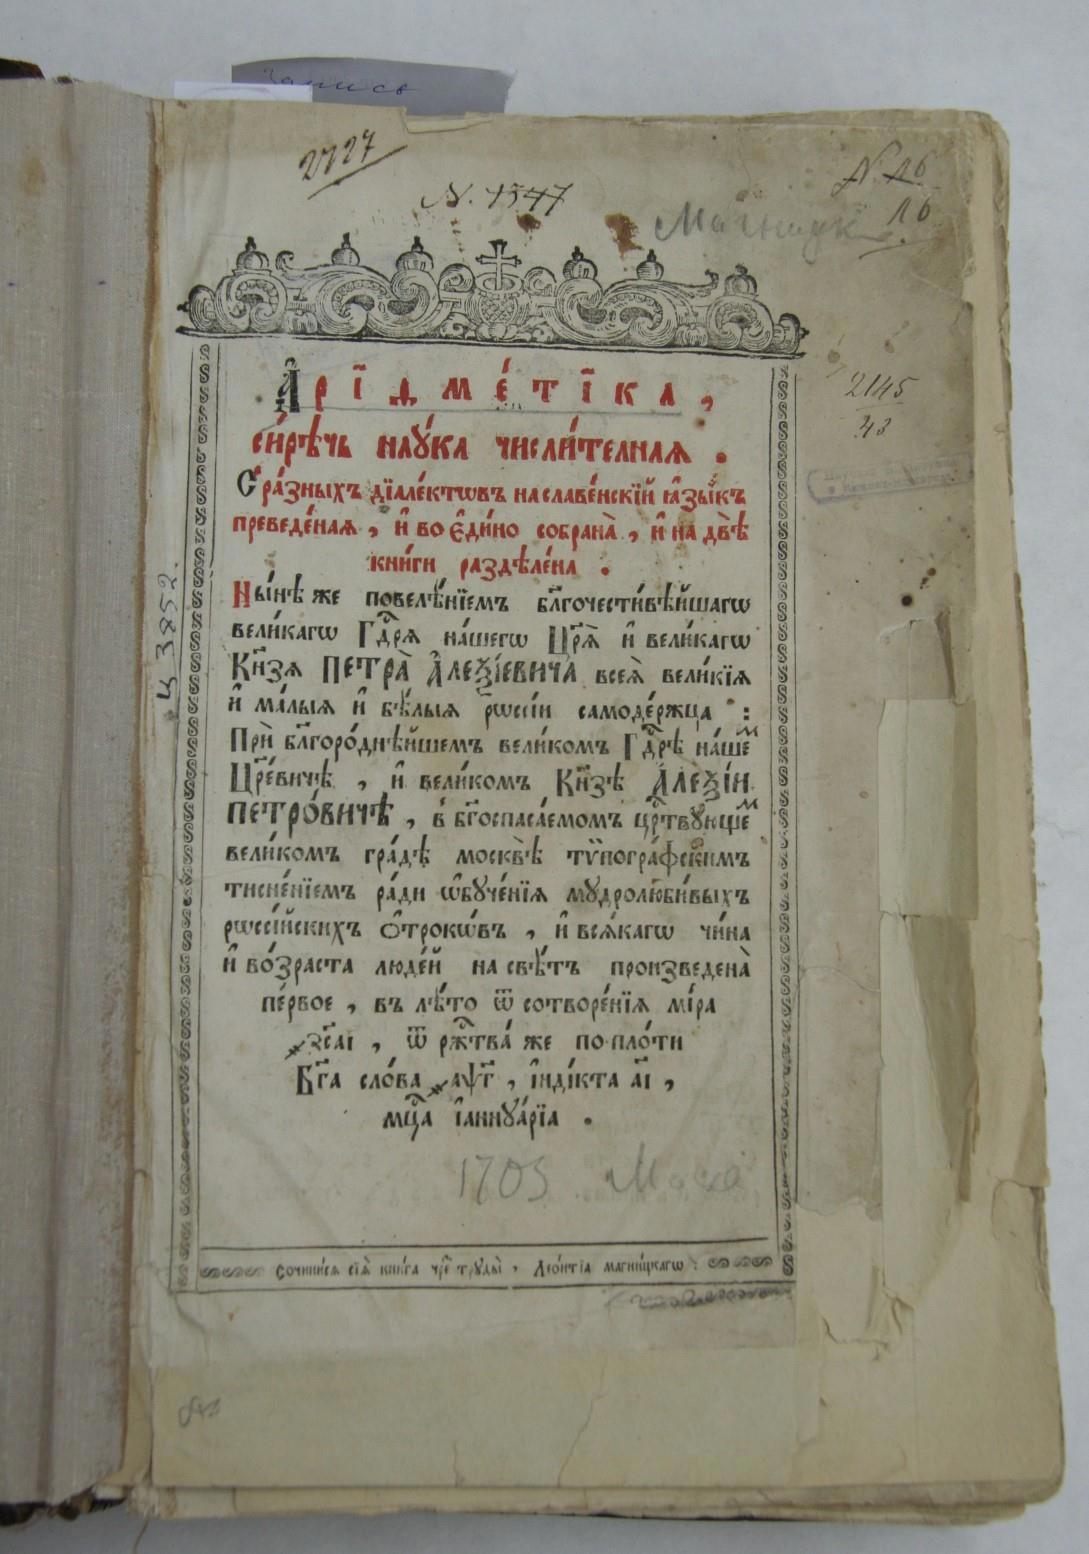 Запись
2727
N. 1547
N. 16
16
Магницк
2145
43
Ц 3852.
А҆рїѳме́тїка,
си́рѣчь наѹ́ка числи́телная.
С ра́зныхъ дїале́ктѡвъ на славе́нскїй ꙗ҆зы́къ
преведе́ная, и҆ во є҆ди́но собрана̀, и҆ на двѣ̀
кни́ги раздѣле́на.
Ны́нѣ же повелѣ́нїемъ бл҃гочести́вѣйшагѡ
вели́кагѡ Гдⷭ҇рѧ на́шегѡ Цр҃ѧ̀ и҆ вели́кагѡ
Кн҃зѧ ПЕТРА̀ А҆леѯі́евича всеѧ̀ вели́кїѧ
и҆ ма́лыѧ и҆ бѣ́лыѧ рѡссі́и самоде́ржца :
Прѝ бл҃горо́днѣйшемъ вели́комъ Гдⷭ҇рѣ на́шеⷨ
Цр҃е́вичѣ, и҆ вели́комъ Кн҃зѣ А҆леѯі́и
ПЕТРО́ВИЧѢ, в̾ бг҃оспаса́емомъ црⷭ҇твꙋющеⷨ
вели́комъ гра́дѣ москвѣ̀ тѵпогра́фскимъ
тисне́нїемъ ра́ди ѡ҆бꙋче́нїѧ мꙋдролюби́выхъ
рѡссі́йскихъ ѻ҆трокѡ́въ, и҆ всѧ́кагѡ чи́на
и҆ во́зраста люде́й на свѣ́тъ произведена̀
пе́рвое, въ лѣ́то ѿ сотворе́нїѧ мі́ра
҂зс҃аі, ѿ ржⷭ҇тва́ же по пло́ти
Бг҃а сло́ва ҂аѱ҃г, і҆нді́кта а҃і,
мцⷭ҇а і҆аннꙋа́рїа.
1703 Моск
Сочини́сѧ сїѧ̀ кни́га чрⷥе трꙋды̀, Лео́нтїа магни́цкагѡ :